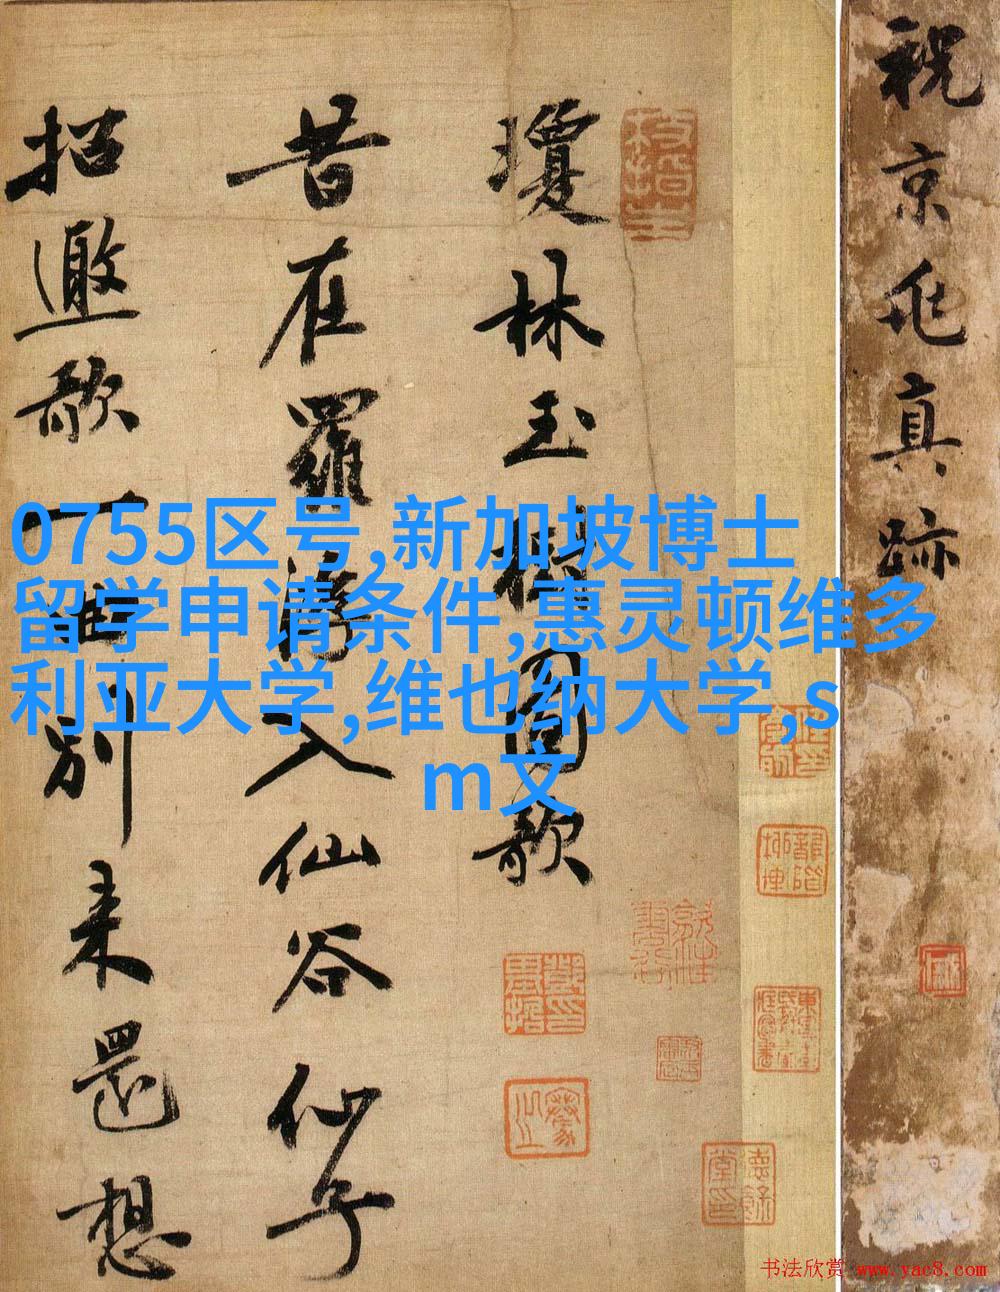 祝京兆真跡
枝指生
瓊林玉樹圖歌
昔在羅浮入仙谷仙子
招邀歌一曲別来還想
0755区号,新加坡博士
留学申请条件,惠灵顿维多
利亚大学,维也纳大学,s
m文
书法欣赏 www.yac8.com